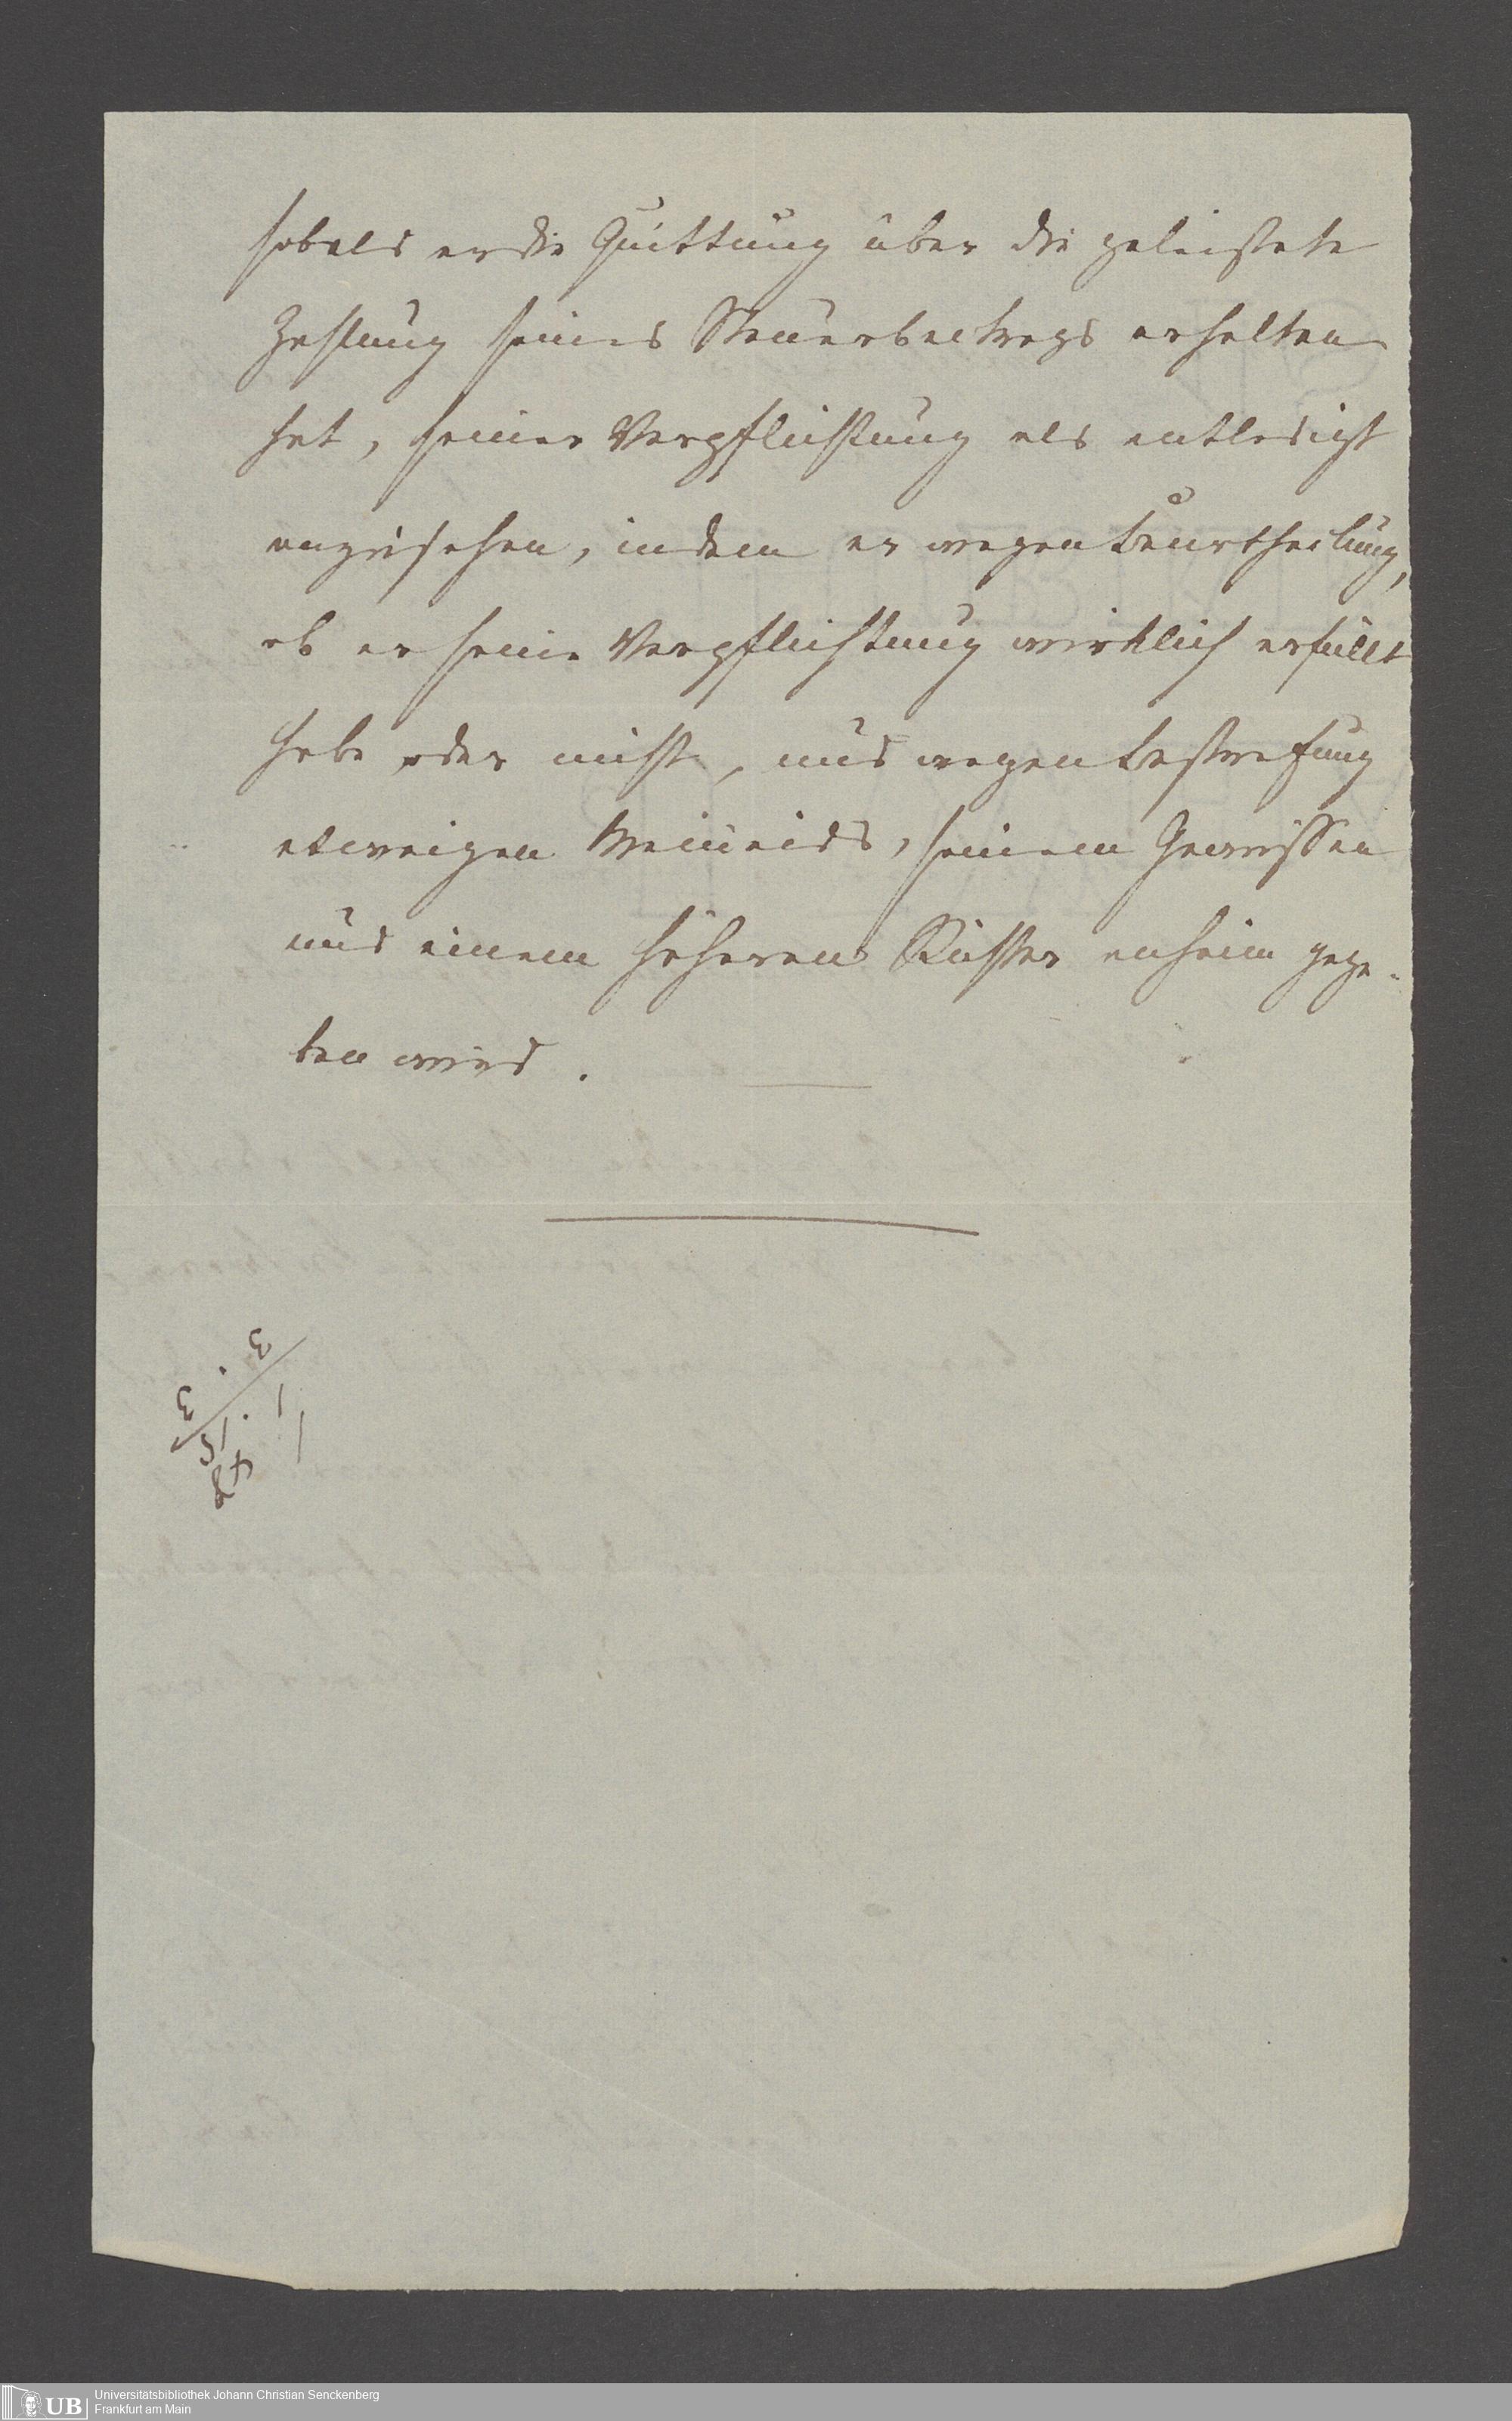 sobald er die Quittung über die geleistete
Zahlung seines Steuerbeitrags erhalten
hat, seiner Verpflichtung als entledigt
anzusehen, indem er wegen Beurtheilung,
ob er seine Verpflichtung wirklich erfüllt
habe oder nicht, und wegen Bestrafung
etwaigen Meineids, seinem Gewissen
und einem höheren Richter anheim gege-
ben wird.
UB
Universitätsbibliothek Johann Christian Senckenberg
Frankfurt am Main